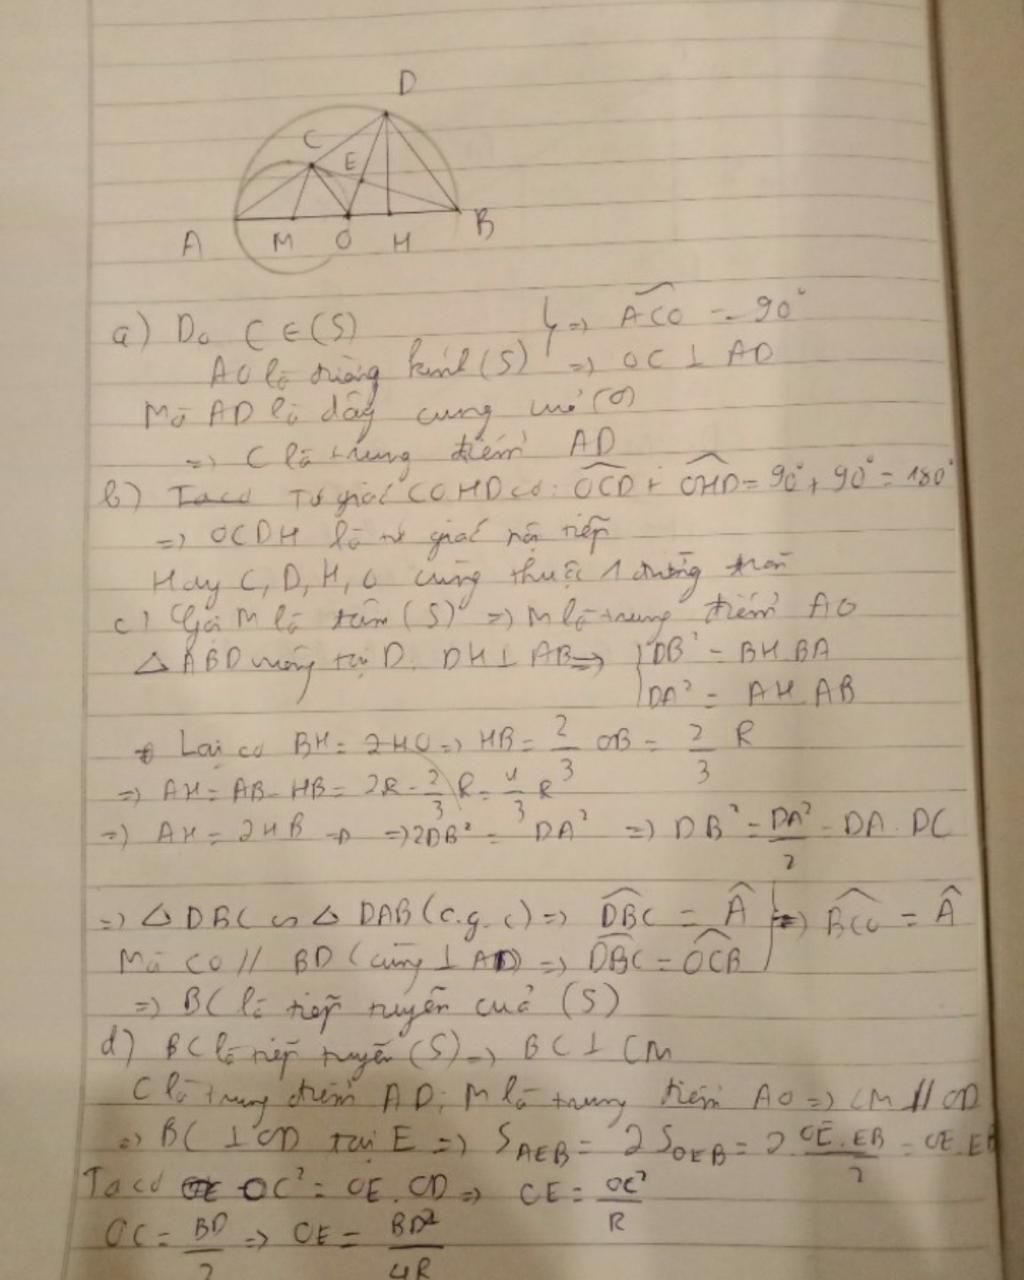 D
C
E
A M O H B
a) Do C ∈ (S)
AO là đường kính (S) } => ACO = 90°
=> OC ⊥ AD
Mà AD là dây cung của (O)
=> C là trung điểm AD
b) Ta có Tứ giác COHD có: OCD + OHD = 90° + 90° = 180°
=> OCDH là tứ giác nội tiếp
Hay C, D, H, O cùng thuộc 1 đường tròn
c) Gọi M là tâm (S) => M là trung điểm AO
△ ABD vuông tại D. DH ⊥ AB => { DB² = BH.BA
DA² = AH.AB
Lại có BH = 2HO => HB = 2/3 OB = 2/3 R
=> AH = AB - HB = 2R - 2/3 R = 4/3 R
=> AH = 2HB => 2DB² = DA² => DB² = DA²/2 = DA.DC
=> △ DBC ∽ △ DAB (c.g.c) => DBC = A } => BCO = A
Mà CO // BD (cùng ⊥ AD) => DBC = OCB
=> BC là tiếp tuyến của (S)
d) BC là tiếp tuyến (S) => BC ⊥ CM
C là trung điểm AD; M là trung điểm AO => CM // OD
=> BC ⊥ OD tại E => S_AEB = 2S_OEB = 2. OE.EB/2 = OE.EB
Ta có OC² = OE.OD => OE = OC²/R
OC = BD/2 => OE = BD²/4R